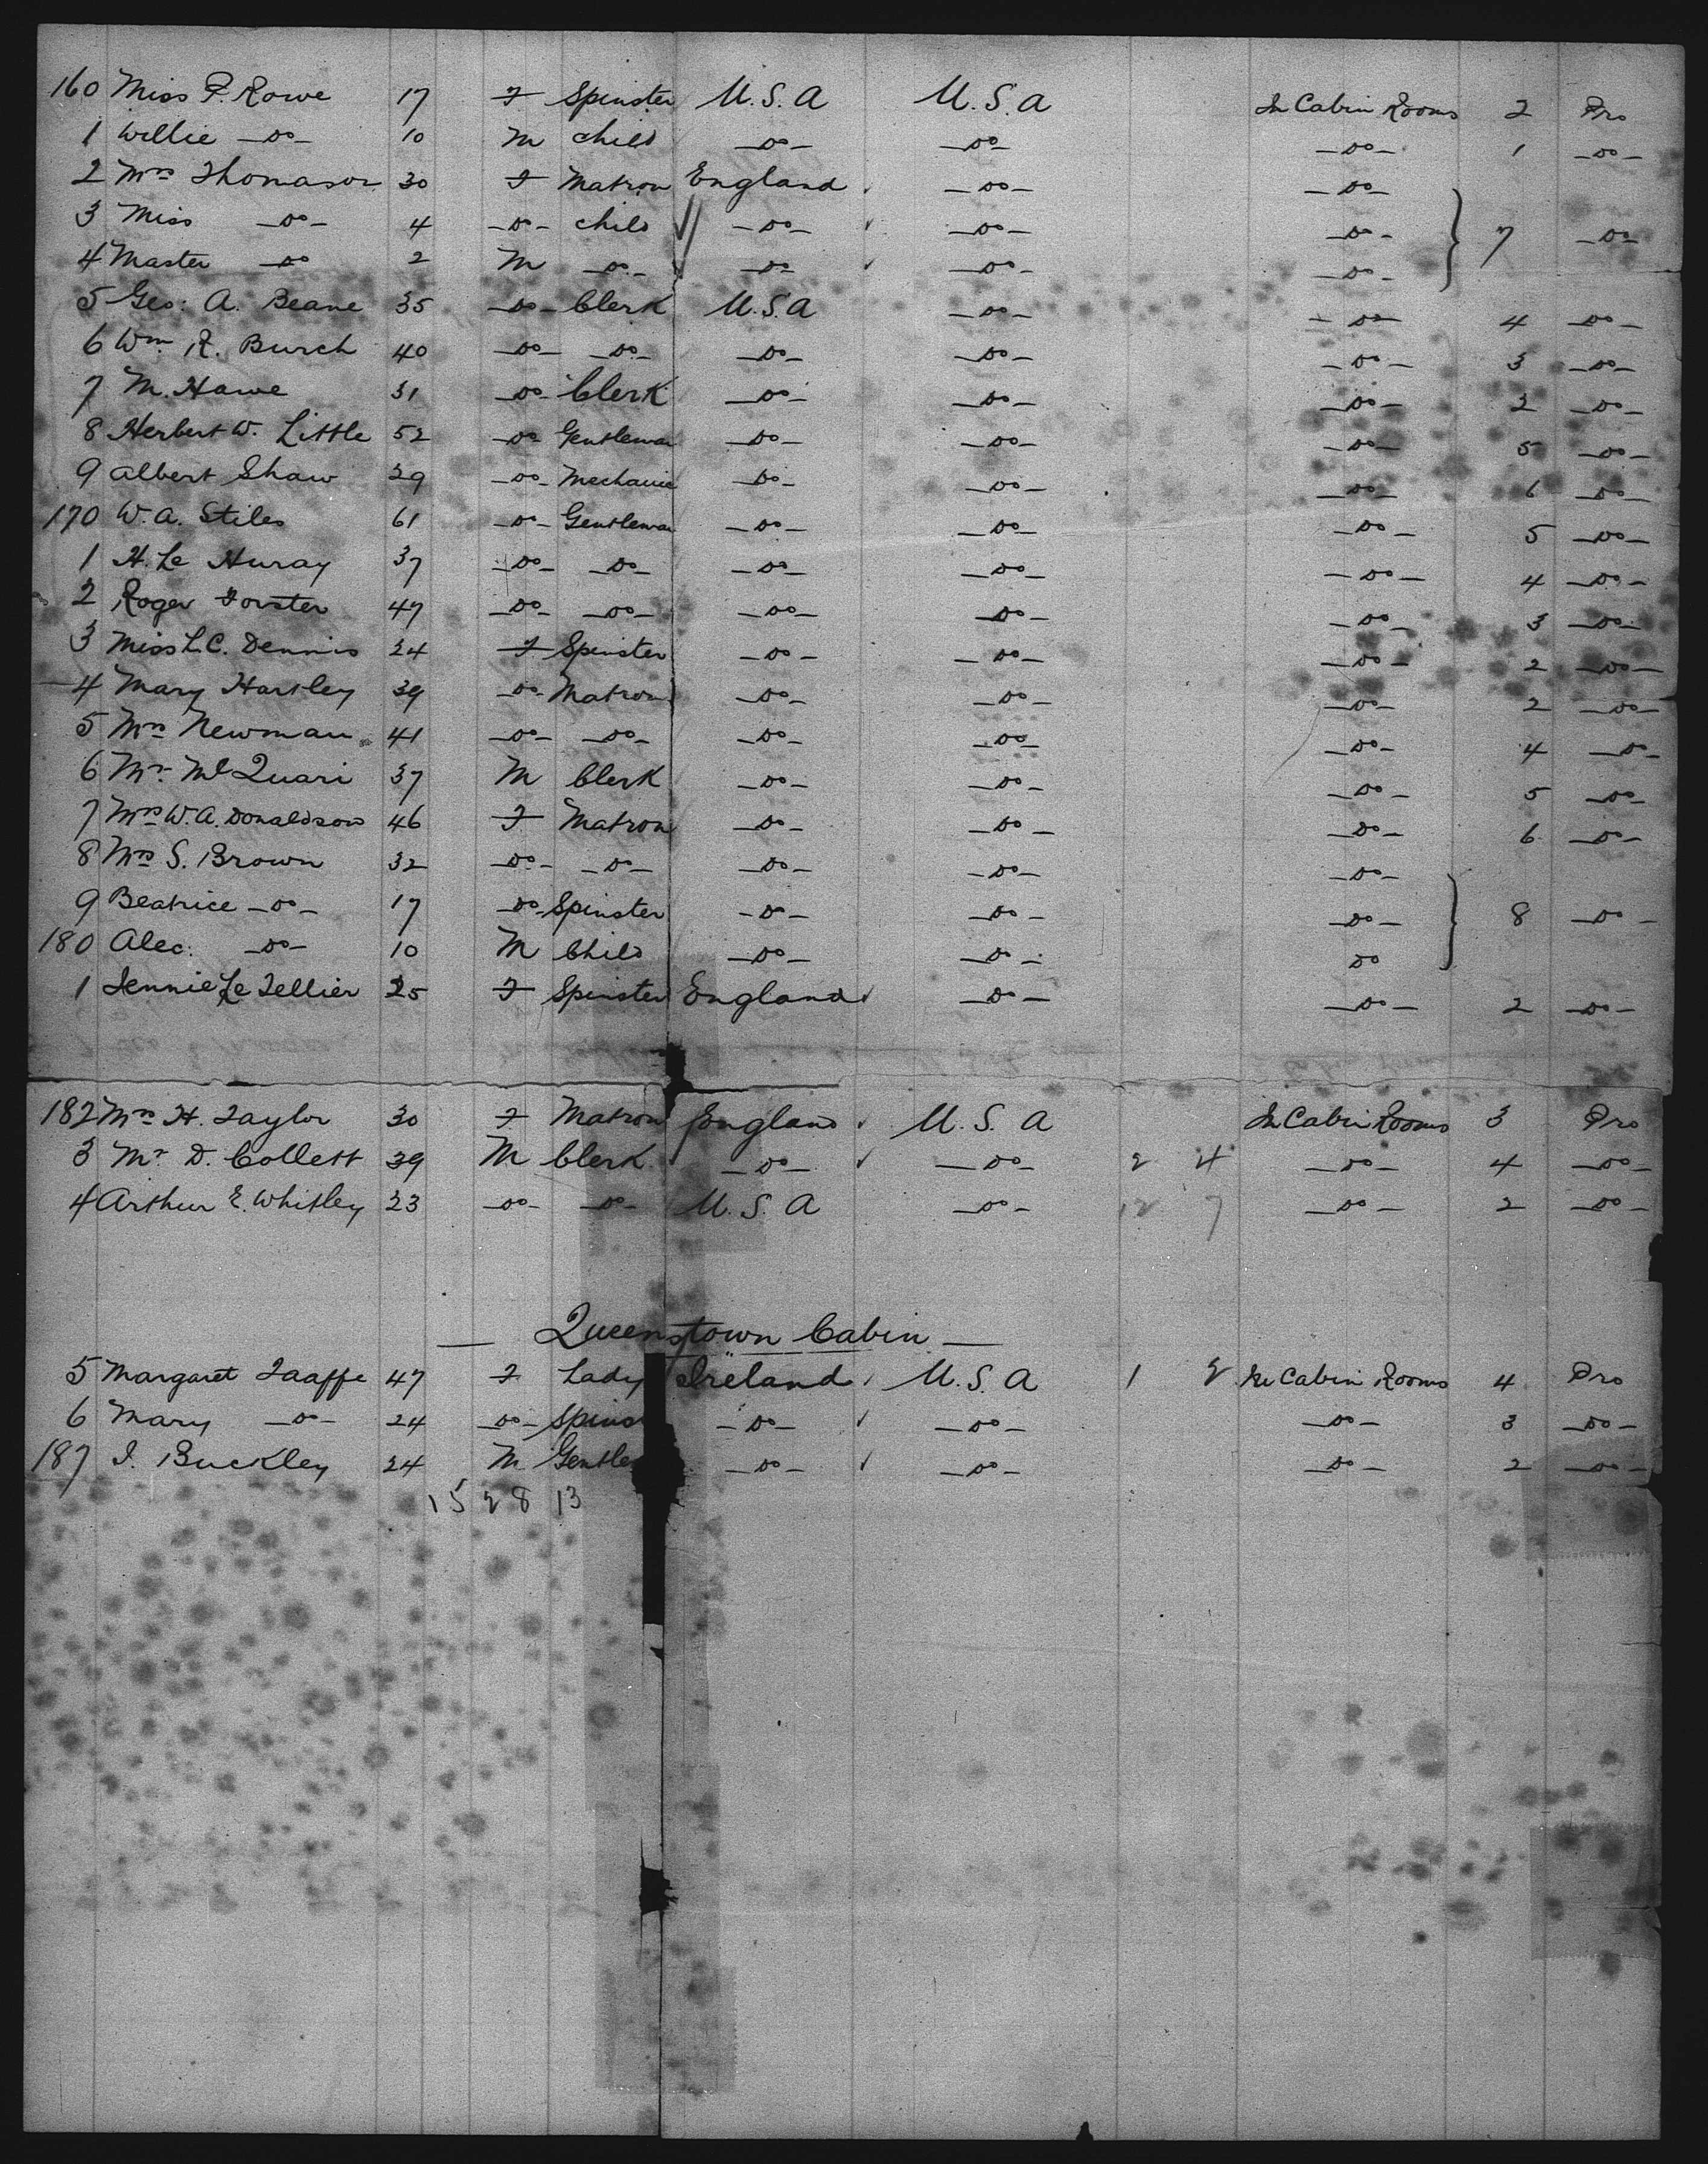 160 Miss P. Rowe 17 F Spinster U.S.A U.S.a In Cabin Rooms 2 Pro
1 Willie —do— 10 M child —do— —do— —do— 1 —do—
2 Mrs Thomason 30 F Matron England —do— —do—
3 Miss —do— 4 —do— child —do— —do— —do— 7 —do—
4 Master —do— 2 M —do— —do— —do— —do—
5 Geo: A. Beane 35 —do— Clerk U.S.A —do— —do— 4 —do—
6 Wm R. Burch 40 —do— —do— —do— —do— —do— 3 —do—
7 M. Hawe 31 —do— Clerk —do— —do— —do— 2 —do—
8 Herbert W. Little 52 —do— Gentleman —do— —do— —do— 5 —do—
9 Albert Shaw 29 —do— Mechanic —do— —do— —do— 6 —do—
170 W.A. Stiles 61 —do— Gentleman —do— —do— —do— 5 —do—
1 H. Le Huray 37 —do— —do— —do— —do— —do— 4 —do—
2 Roger Forster 47 —do— —do— —do— —do— —do— 3 —do—
3 Miss L.C. Dennis 24 F Spinster —do— —do— —do— 2 —do—
4 Mary Hartley 39 —do— Matron —do— —do— —do— 2 —do—
5 Mrs Newman 41 —do— —do— —do— —do— —do— 4 —do—
6 Mr. McQuari 37 M Clerk —do— —do— —do— 5 —do—
7 Mrs W.A. Donaldson 46 F Matron —do— —do— —do— 6 —do—
8 Mrs S. Brown 32 —do— —do— —do— —do— —do—
9 Beatrice —do— 17 —do— Spinster —do— —do— —do— 8 —do—
180 Alec. —do— 10 M Child —do— —do— do
1 Jennie Le Tellier 25 F Spinster England —do— —do— 2 —do—
182 Mrs H. Taylor 30 F Matron England U.S.A In Cabin Rooms 3 Pro
3 Mr D. Collett 39 M Clerk —do— —do— 2 4 —do— 4 —do—
4 Arthur E. Whitley 23 —do— —do— U.S.A —do— 12 7 —do— 2 —do—
— Queenstown Cabin —
5 Margaret Taaffe 47 F Lady Ireland U.S.A 1 2 In Cabin Rooms 4 Pro
6 Mary —do— 24 —do— Spins —do— —do— —do— 3 —do—
187 J. Buckley 24 M Gentle —do— —do— —do— 2 —do—
15 28 13